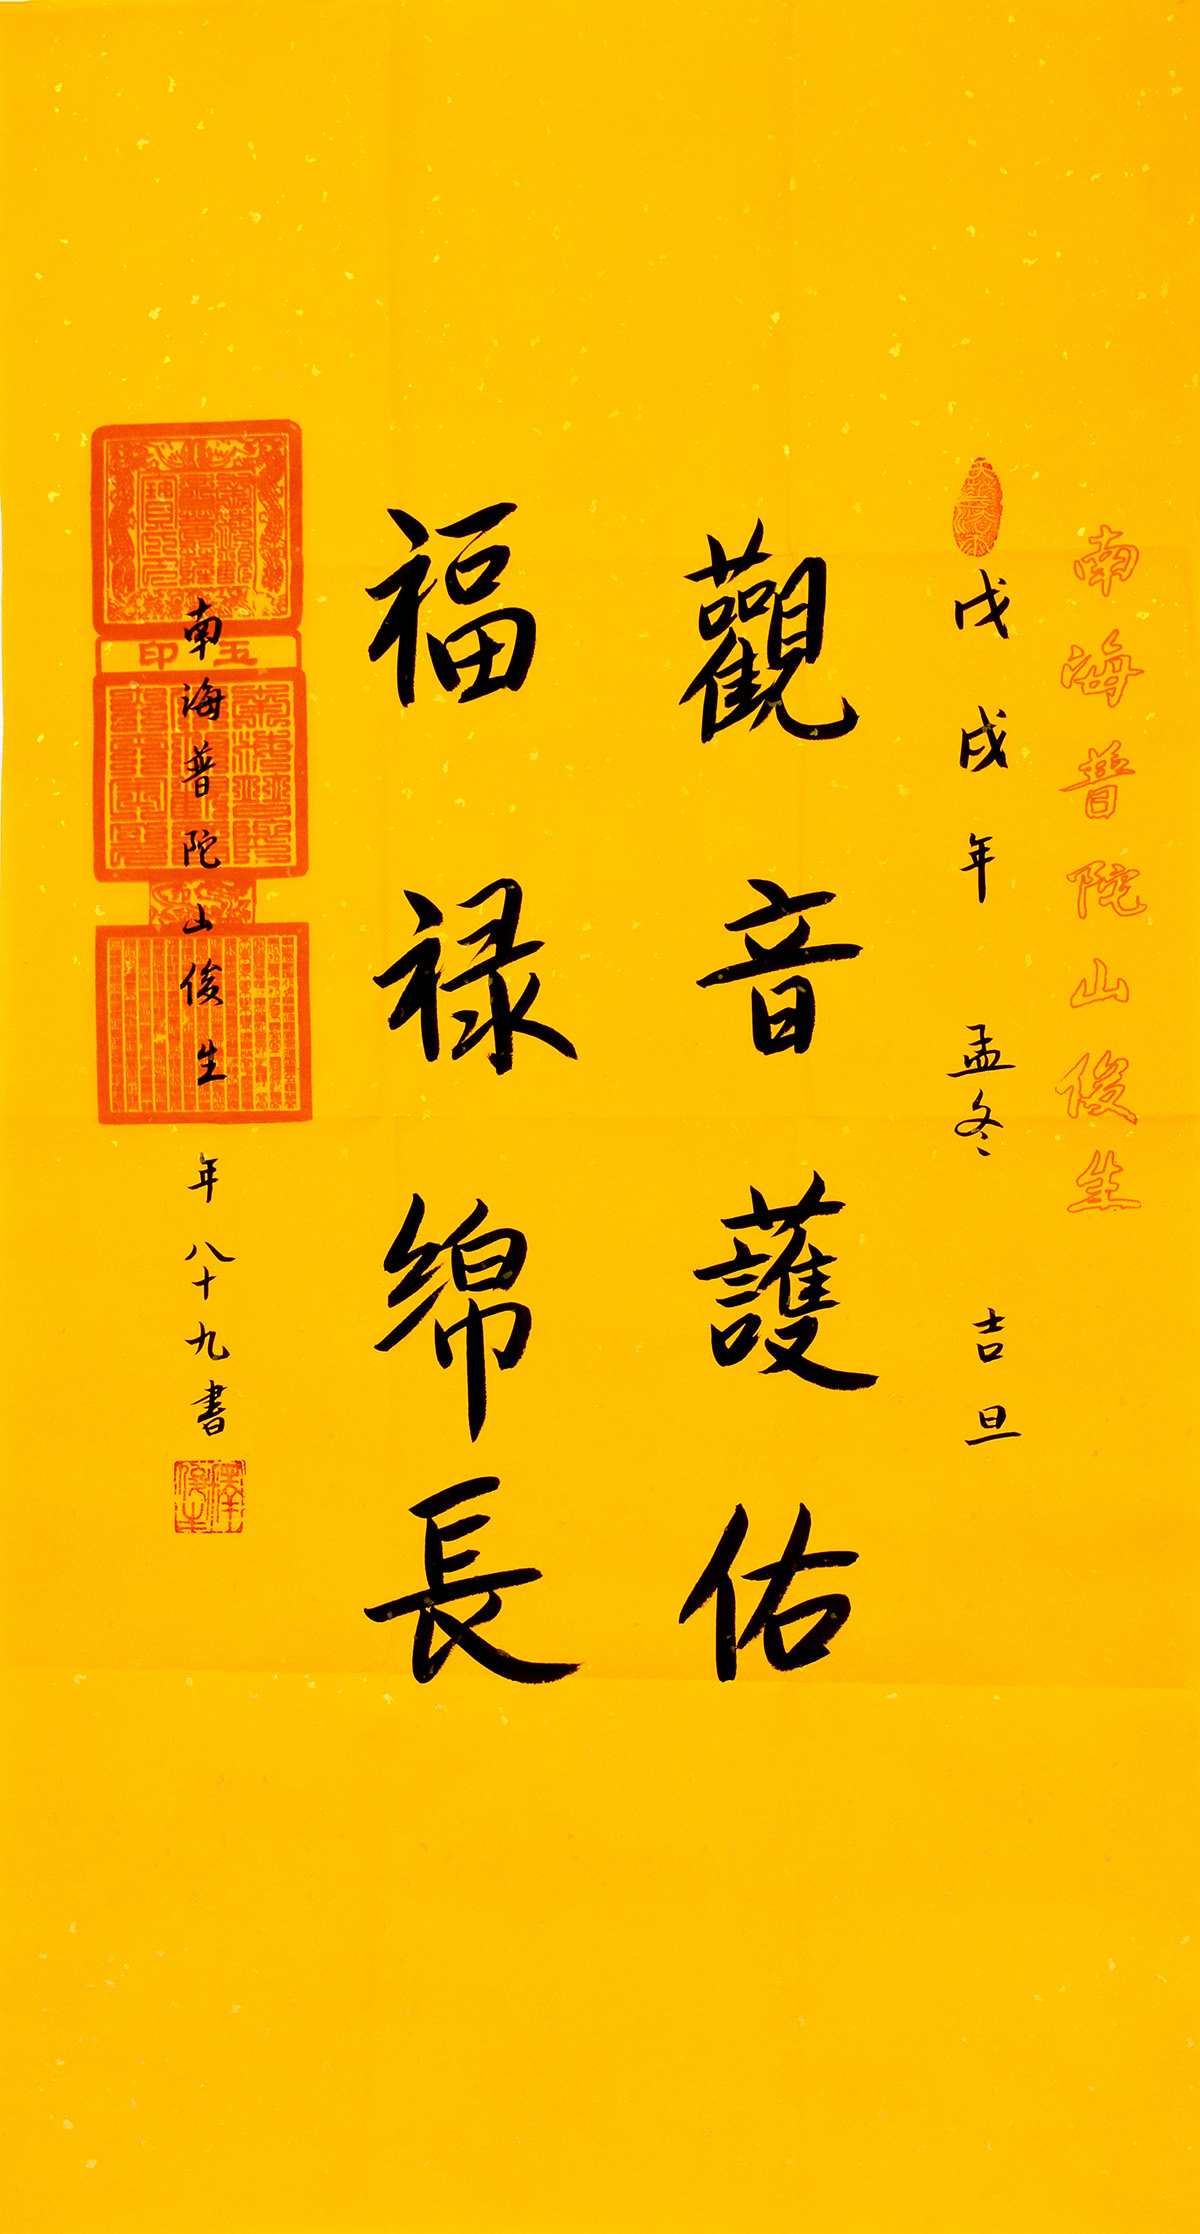 南海普陀山俊生
戊戌年孟冬吉旦
觀音護佑
福禄綿長
玉印
南海普陀山俊生年八十九書